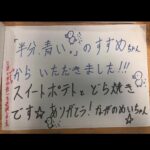 「半分、青い。」のすずめちゃん
からいただきました!!!
スイートポテトとどら焼き
です☆ ありがとう!ながのめいちゃん